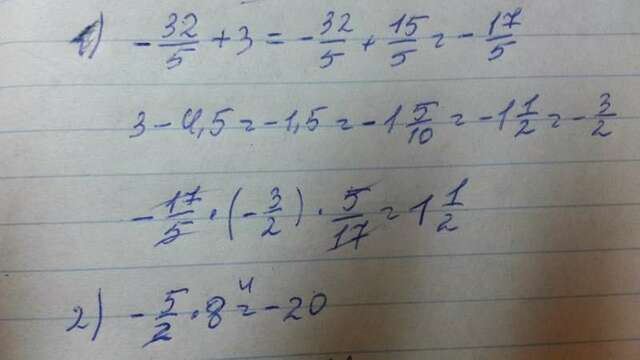 1) -32/5 + 3 = -32/5 + 15/5 = -17/5
3 - 4,5 = -1,5 = -1 5/10 = -1 1/2 = -3/2
-17/5 · (-3/2) · 5/17 = 1 1/2
2) -5/2 · 8 4 = -20